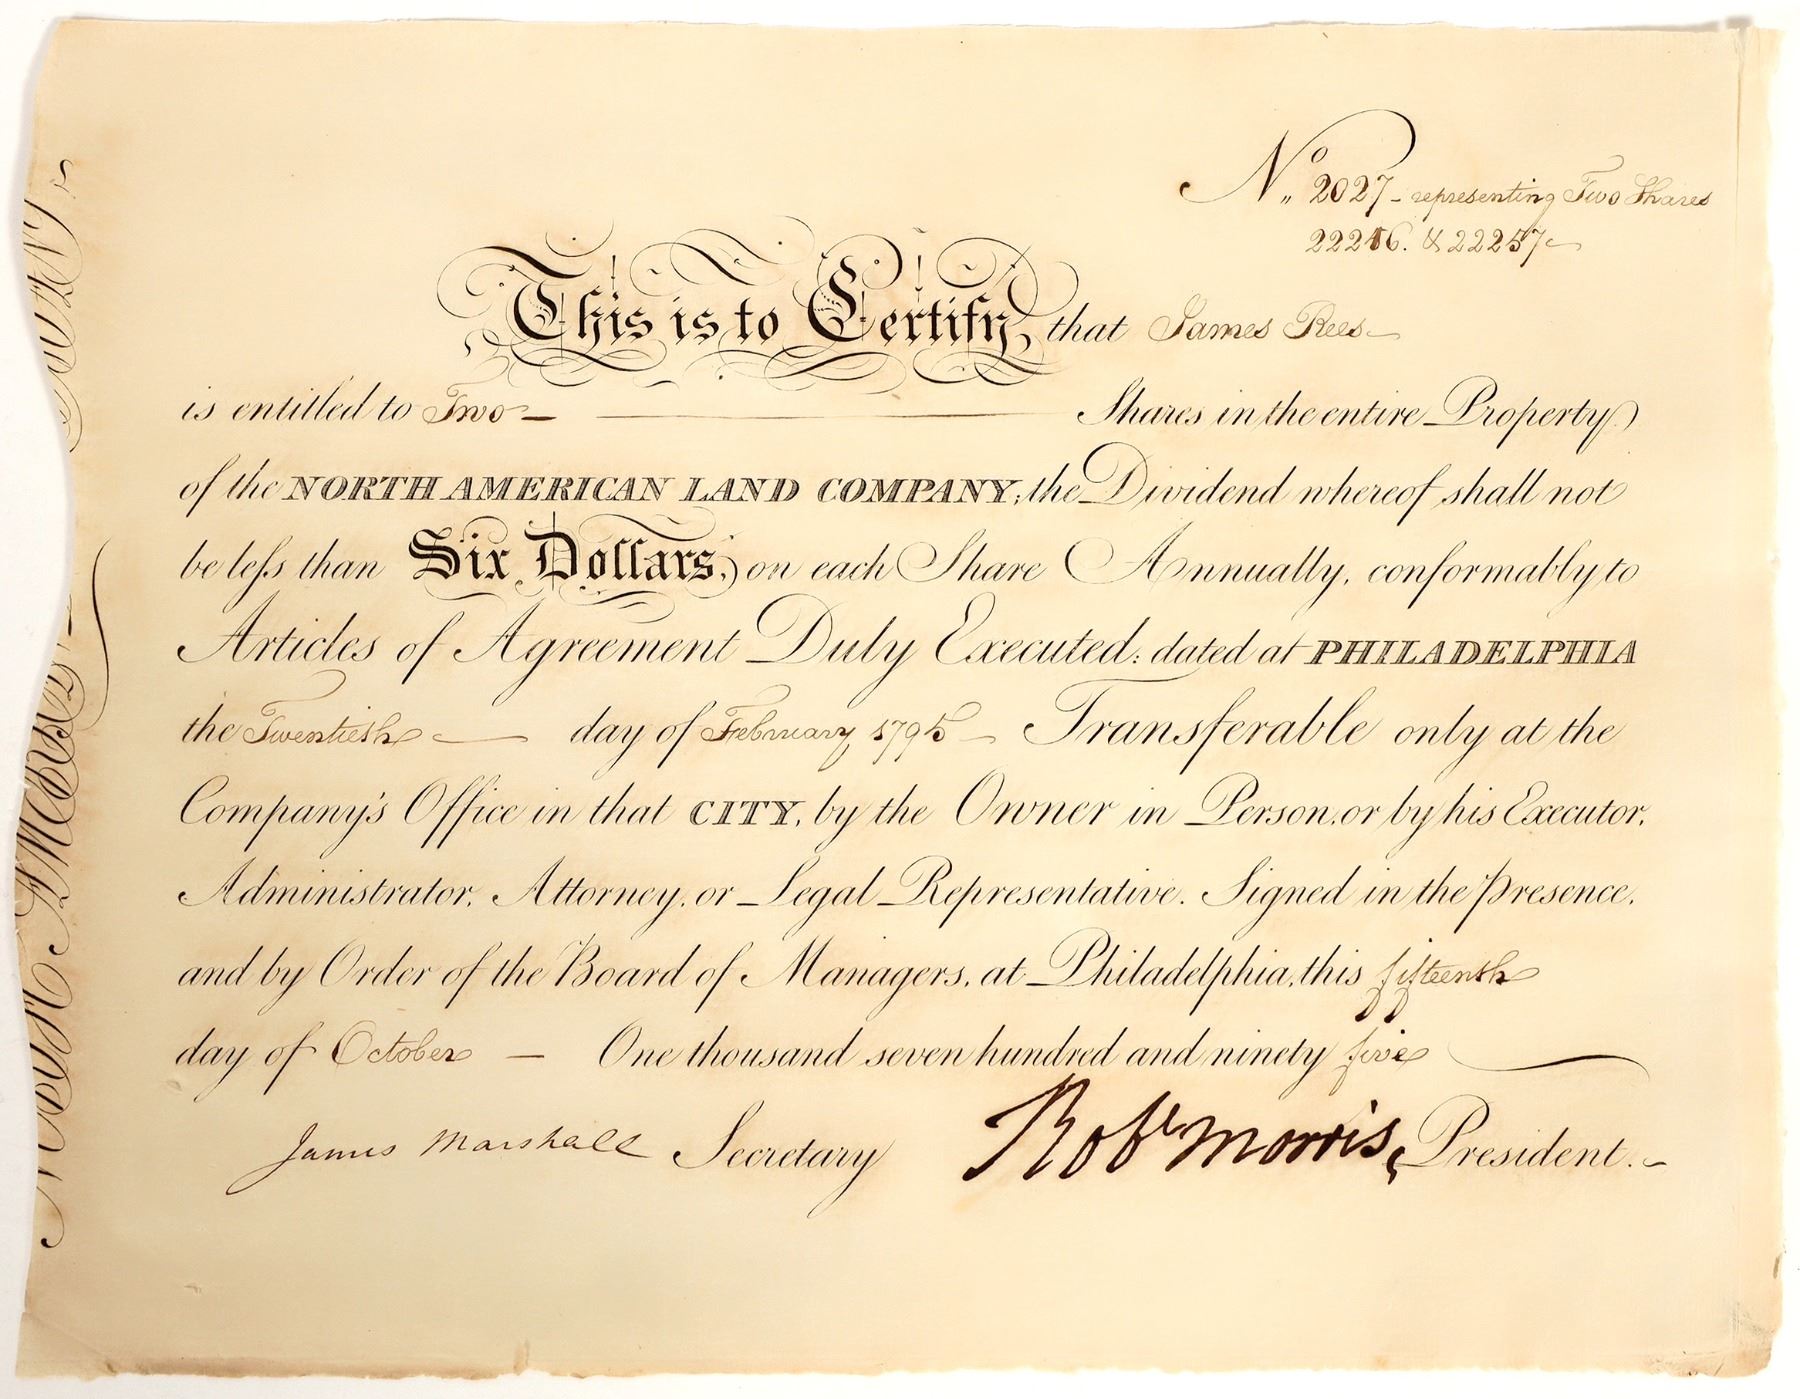 No 2027 - representing Two Shares
& 22257
This is to Certify, that James Rees
is entitled to Two Shares in the entire Property
of the NORTH AMERICAN LAND COMPANY; the Dividend whereof shall not
be less than Six Dollars, on each Share Annually, conformably to
Articles of Agreement Duly Executed: dated at PHILADELPHIA
the Twentieth day of February 1795 Transferable only at the
Company's Office in that CITY, by the Owner in Person, or by his Executor,
Administrator, Attorney, or Legal Representative. Signed in the presence,
and by Order of the Board of Managers, at Philadelphia, this fifteenth
day of October One thousand seven hundred and ninety five
James Marshall Secretary Robt Morris, President.